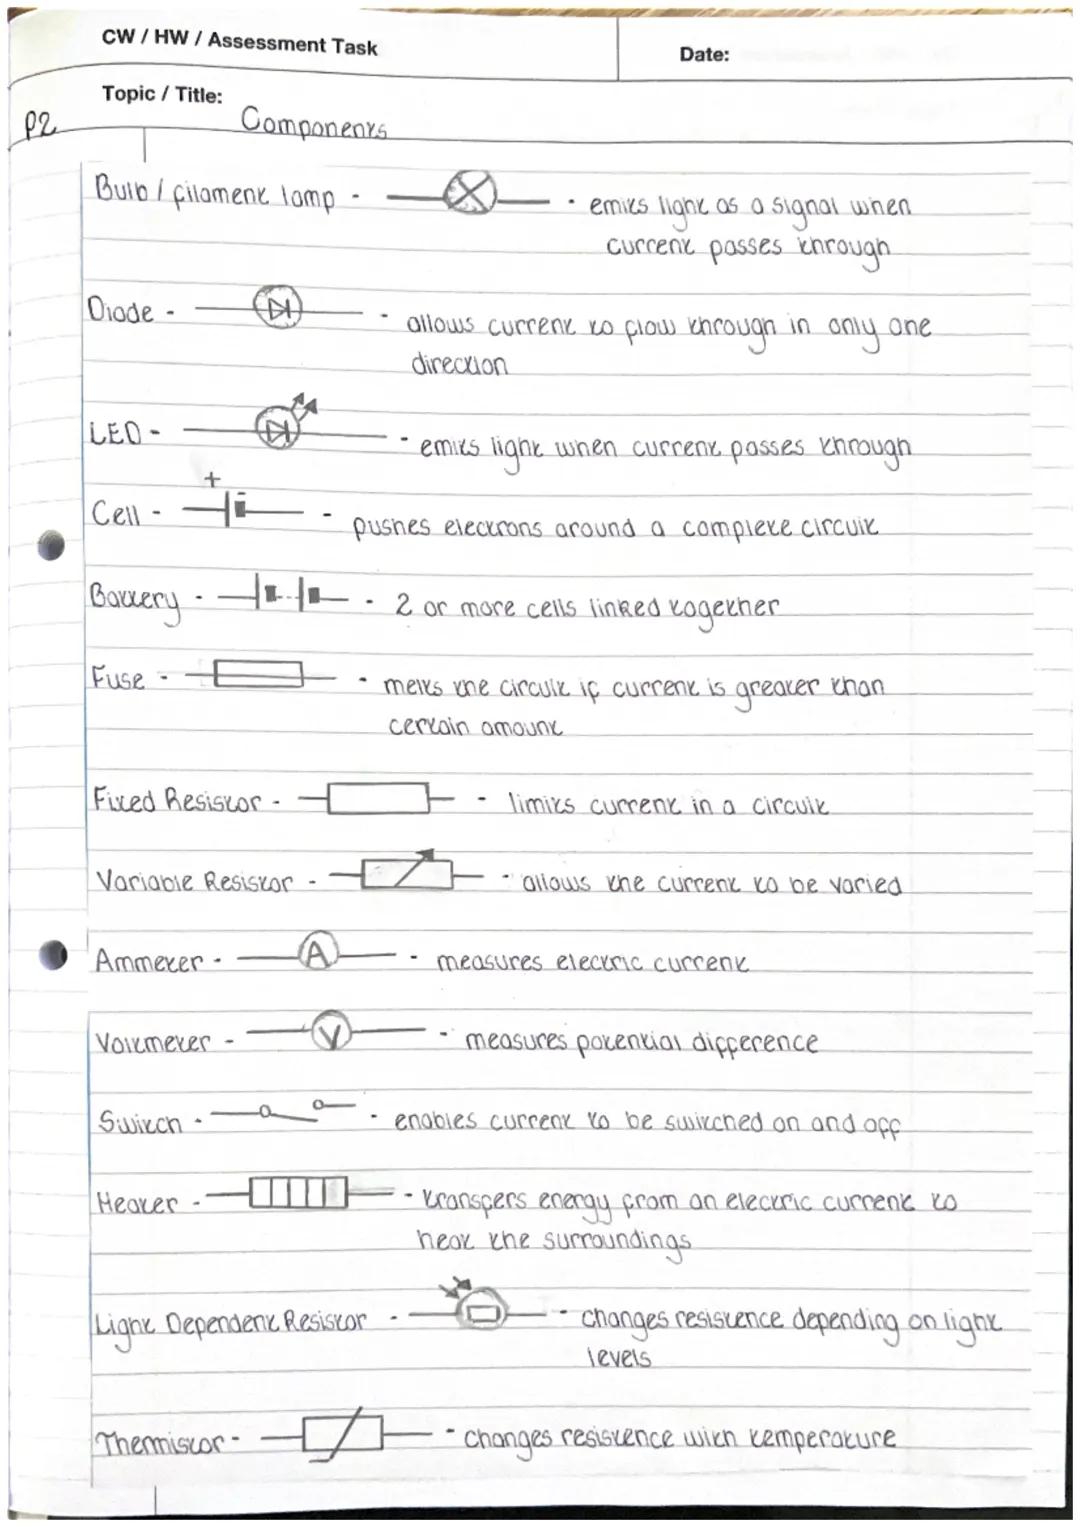 CW / HW / Assessment Task
Date:
Topic / Title:
P2
Components
Bulb / filament lamp - - emits light as a signal when
current passes through
Diode - - allows current to flow through in only one
direction
LED - - emits light when current passes through
+ -
Cell - - pushes electrons around a complete circuit
Battery - - 2 or more cells linked together
Fuse - - melts the circuit if current is greater than
certain amount
Fixed Resistor - - limits current in a circuit
Variable Resistor - - allows the current to be varied
Ammeter - A - measures electric current
Voltmeter - V - measures potential difference
Switch - - enables current to be switched on and off
Heater - - transfers energy from an electric current to
heat the surroundings
Light Dependent Resistor - - changes resistence depending on light
levels
Thermistor - - changes resistence with temperature